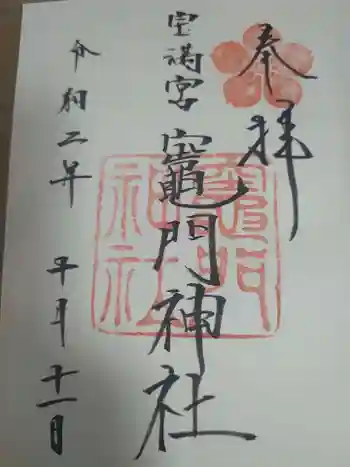 奉拝
宝満宮
竈門神社
令和二年 十月十一日
竈門神社